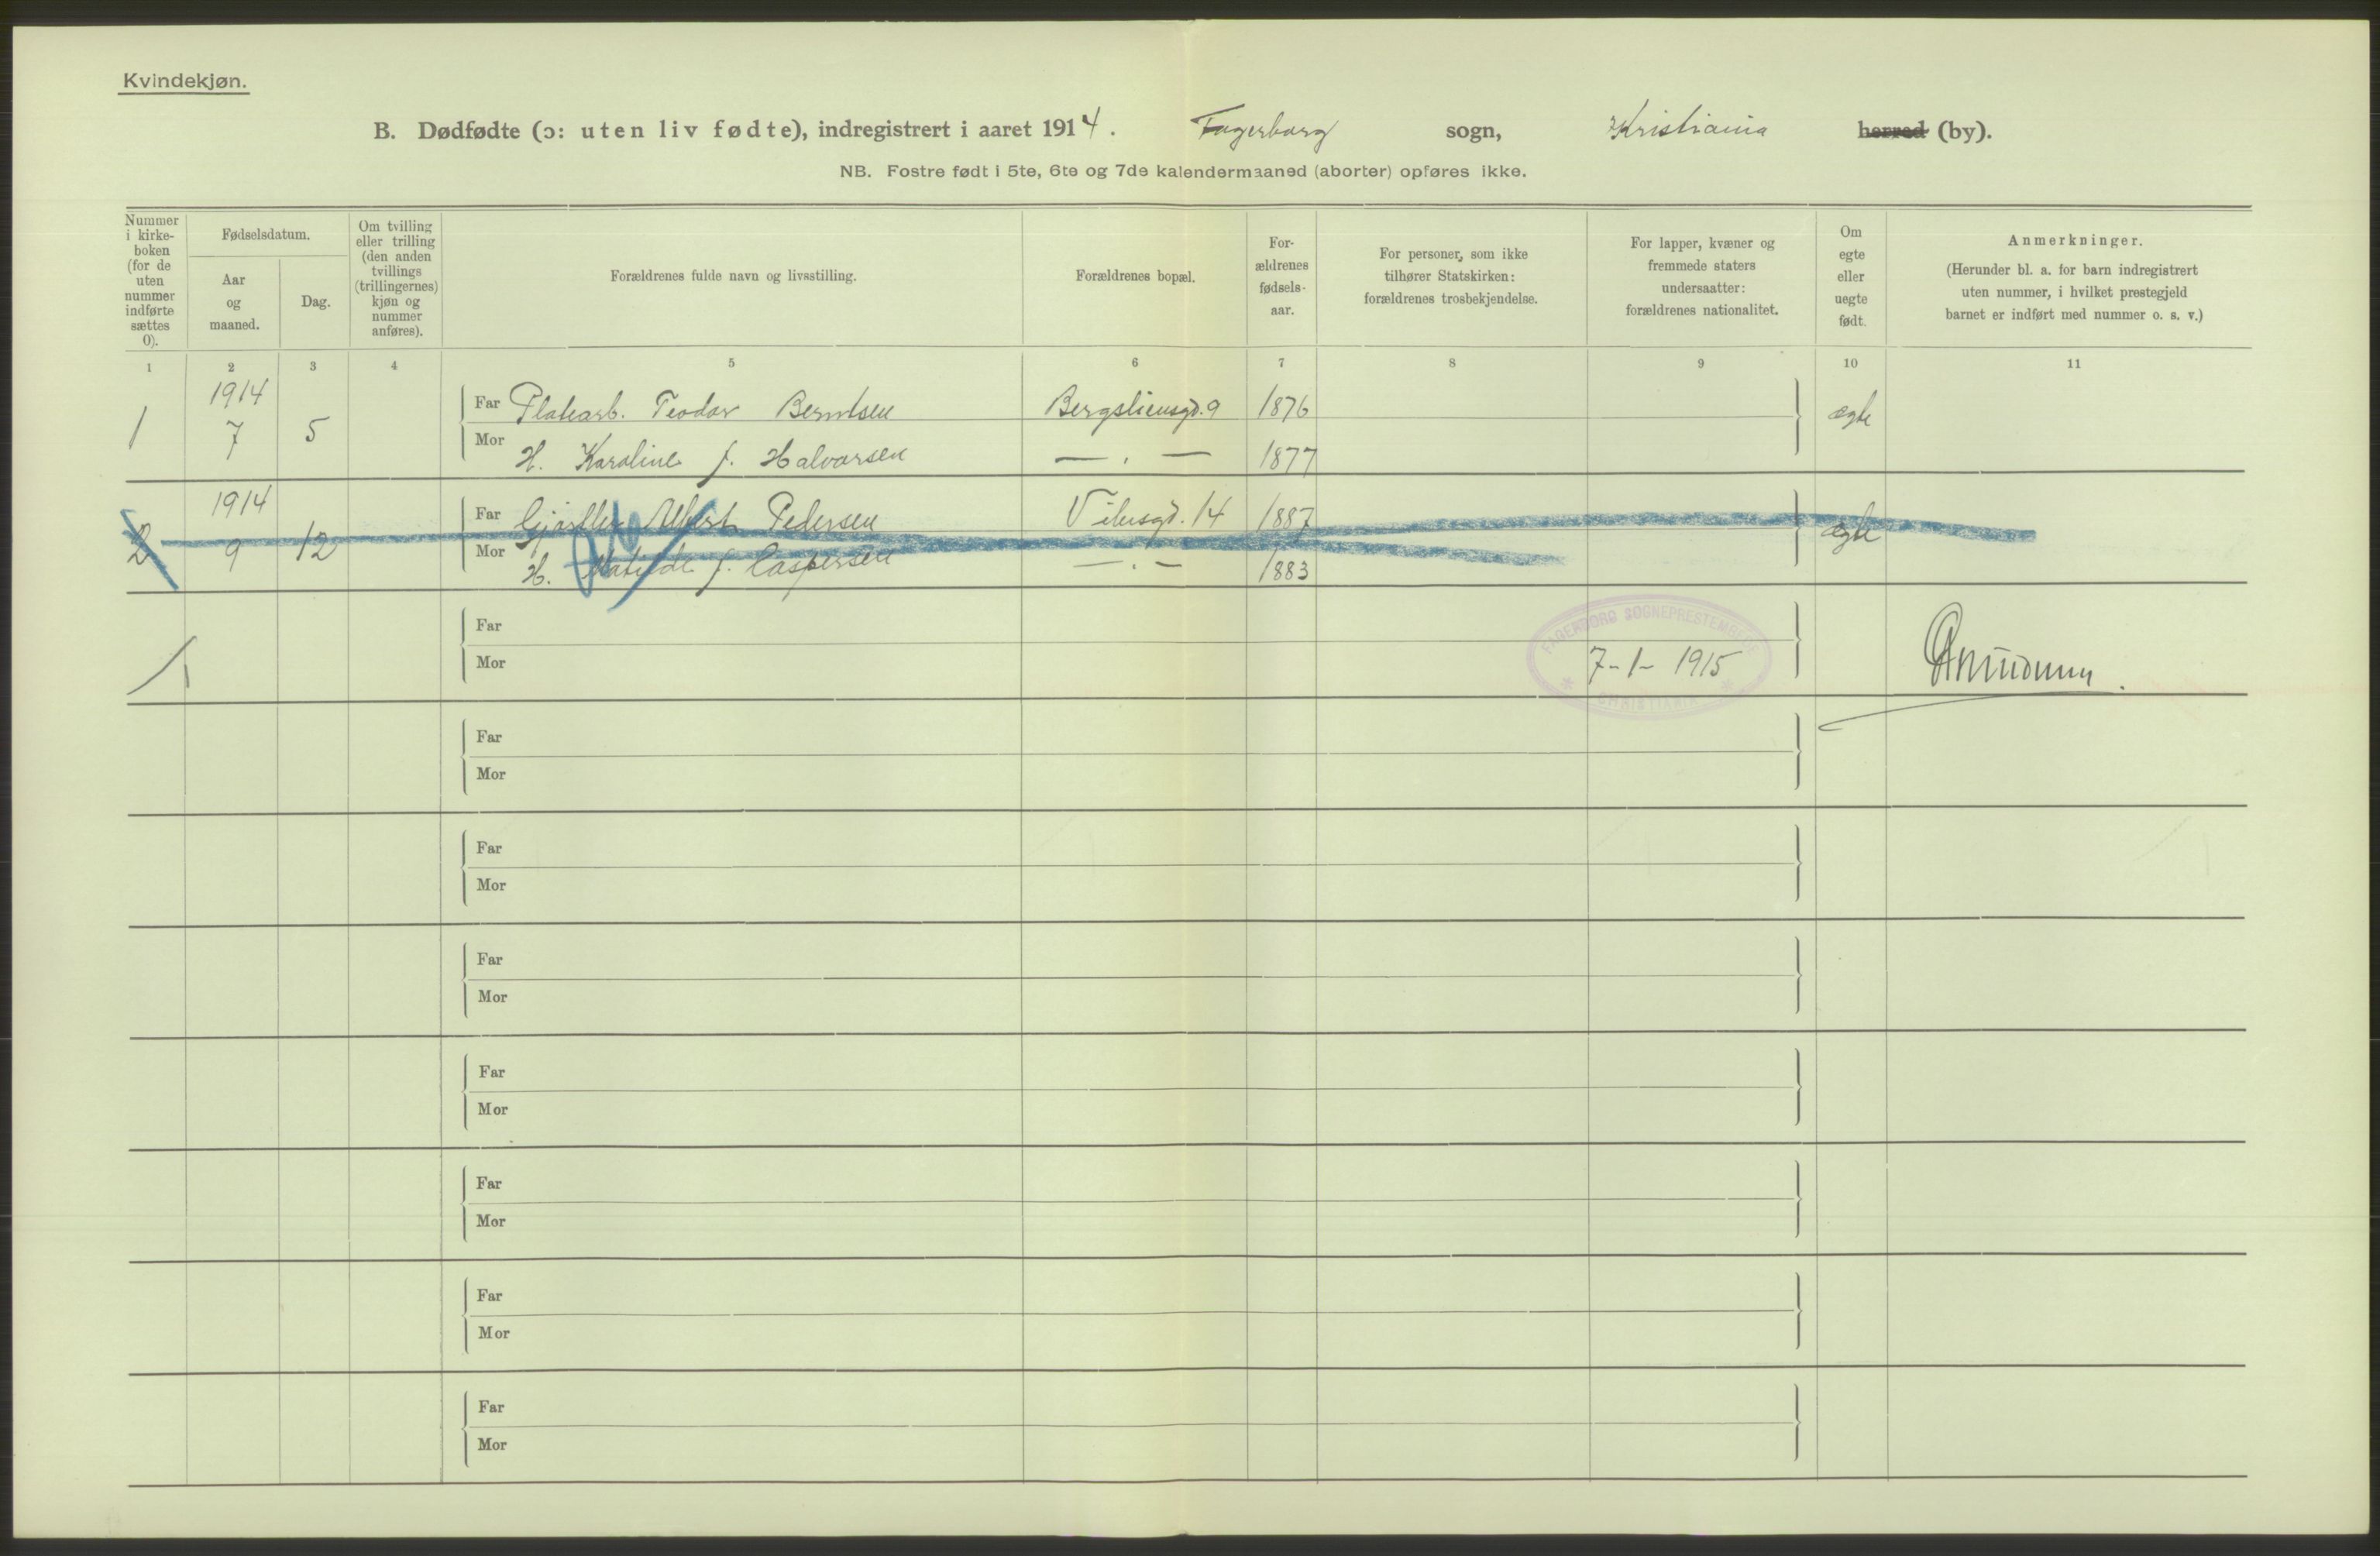 Kvindekjøn.
B. Dødfødte (ɔ: uten liv fødte), indregistrert i aaret 1914. Fagerborg sogn, Kristiania herred (by).
NB. Fostre født i 5te, 6te og 7de kalendermaaned (aborter) opføres ikke.
Nummer
i kirke-
boken
(for de
uten
nummer
indførte
sættes
0).
Fødselsdatum.
Aar
og
maaned.
Dag.
Om tvilling
eller trilling
(den anden
tvillings
(trillingernes)
kjøn og
nummer
anføres).
Forældrenes fulde navn og livsstilling.
Forældrenes bopæl.
For-
ældrenes
fødsels-
aar.
For personer, som ikke
tilhører Statskirken:
forældrenes trosbekjendelse.
For lapper, kvæner og
fremmede staters
undersaatter:
forældrenes nationalitet.
Om
egte
eller
uegte
født.
Anmerkninger.
(Herunder bl. a. for barn indregistrert
uten nummer, i hvilket prestegjeld
barnet er indført med nummer o. s. v.)
1 2 3 4 5 6 7 8 9 10 11
1914
Far Platearb. Teodor Berntsen Bergsliensgd. 9 1876
1 7 5 ægte
Mor H. Karoline f. Halvorsen — . — 1877
1914
Far Gjørtler Albert Pedersen Vibesgd. 14 1887
2 9 12 ægte
Mor H. Matilde f. Caspersen — . — 1883
Far
Mor
FAGERBORG SOGNEPRESTEMBEDE
7-1-1915
CHRISTIANIA
Far
Mor
Far
Mor
Far
Mor
Far
Mor
Far
Mor
Far
Mor
Far
Mor